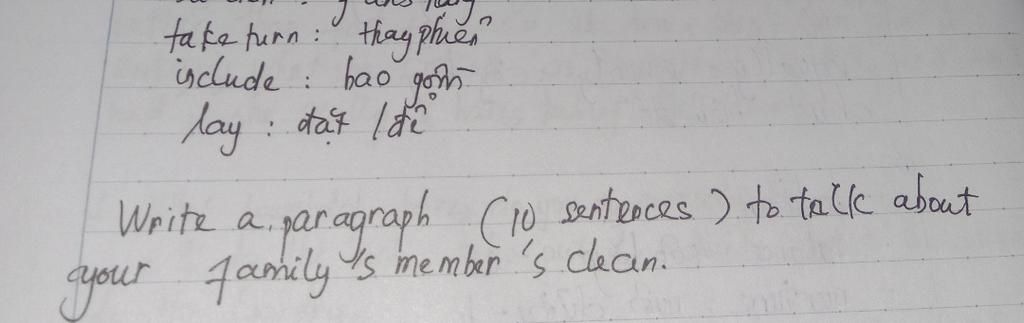 take turn : thay phiên
include : bao gồm
lay : đặt / để
Write a paragraph (10 sentences) to talk about
your family's member's clean.